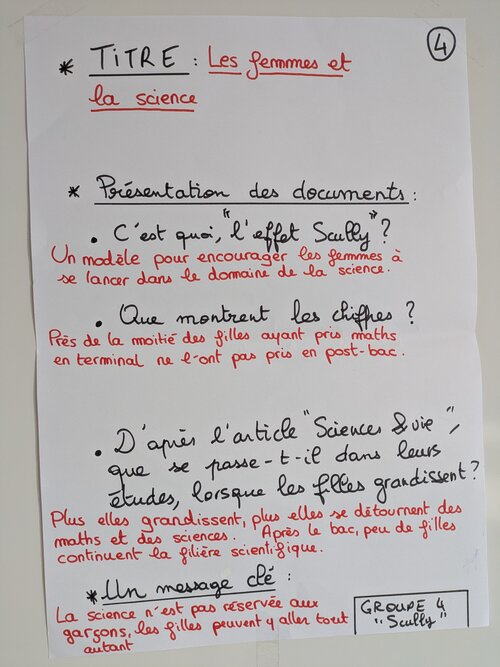 4
* TITRE : Les femmes et
la science
* Présentation des documents :
• C'est quoi, "l'effet Scully" ?
Un modèle pour encourager les femmes à
se lancer dans le domaine de la science.
• Que montrent les chiffres ?
Près de la moitié des filles ayant pris maths
en terminal ne l'ont pas pris en post-bac.
• D'après l'article "Sciences & vie",
que se passe-t-il dans leurs
études, lorsque les filles grandissent ?
Plus elles grandissent, plus elles se détournent des
maths et des sciences. Après le bac, peu de filles
continuent la filière scientifique.
* Un message clé :
La science n'est pas réservée aux
garçons, les filles peuvent y aller tout
autant
GROUPE 4
"Scully"